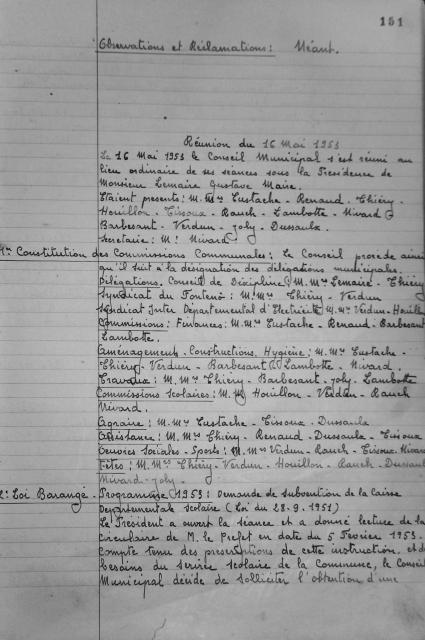 151
Observations et Réclamations : Néant.
Réunion du 16 Mai 1953
Le 16 Mai 1953 le Conseil Municipal s'est réuni au
lieu ordinaire de ses séances sous la Présidence de
Monsieur Lemaire Gustave Maire.
Etaient présents : M.Mrs Eustache - Renaud - Thiéry -
Houillon - Cisoux - Rauch - Lambotte - Nivard
Barbesant - Verdun - Joly - Dussaulx.
Secrétaire : Mr Nivard
1° Constitution des Commissions Communales : Le Conseil procède ainsi
qu'il suit à la désignation des délégations municipales.
Délégations. Conseil de Discipline : M.Mrs Lemaire - Thiéry
Syndicat du : M.Mrs Thiéry - Verdun
Syndicat Inter Départemental d'Electricité M.Mrs Verdun - Houillon
Commissions : Finances : M.Mrs Eustache - Renaud - Barbesant
Lambotte.
Aménagement - Constructions. Hygiène : M.Mrs Eustache -
Thiéry - Verdun - Barbesant - Lambotte - Nivard
Travaux : M.Mrs Thiéry - Barbesant - Joly - Lambotte
Commissions scolaires : M.Mrs Houillon - Verdun - Rauch
Nivard.
Agraire : M.Mrs Eustache - Cisoux - Dussaulx
Assistance : M.Mrs Thiéry - Renaud - Dussaulx - Cisoux
Oeuvres Sociales - Sports : M.Mrs Verdun - Rauch - Cisoux - Nivard
Fêtes : M.Mrs Thiéry - Verdun - Houillon - Rauch - Dussaulx
Nivard - Joly -
2° Loi Barangé - Programme 1953 : Demande de subvention de la Caisse
Départementale scolaire (Loi du 28.9.1951)
Le Président a ouvert la séance et a donné lecture de la
circulaire de M. le Préfet en date du 5 Février 1953.
Compte tenu des prescriptions de cette instruction, et des
besoins du service scolaire de la Commune, le Conseil
Municipal décide de solliciter l'obtention d'une